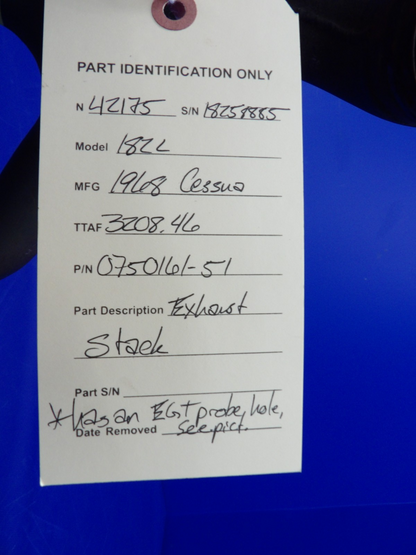 PART IDENTIFICATION ONLY
N 42175 S/N 18258885
Model 182L
MFG 1968 Cessna
TTAF 3208.46
P/N 0750161-51
Part Description Exhaust
Stack
Part S/N
*has an EGT probe hole,
Date Removed see pict.